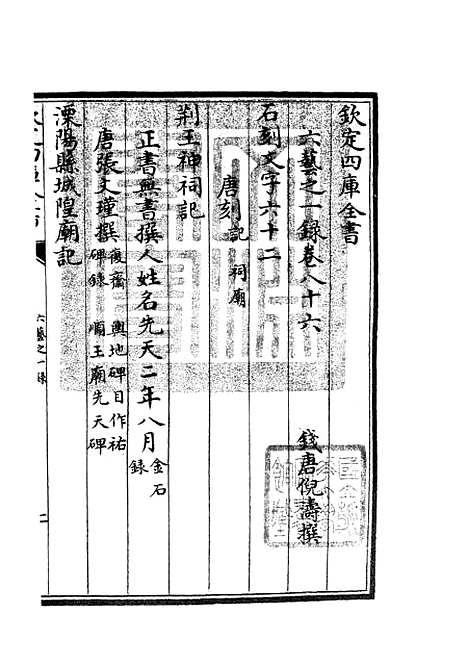 欽定四庫全書
六藝之一録卷八十六
錢唐倪濤撰
石刻文字六十二
唐刻記 祠廟
荆王神祠記
正書無書撰人姓名先天二年八月金石録
唐張文瓘撰復齋碑錄 輿地碑目作祐順王廟先天碑
溧陽縣城隍廟記
六藝之一録